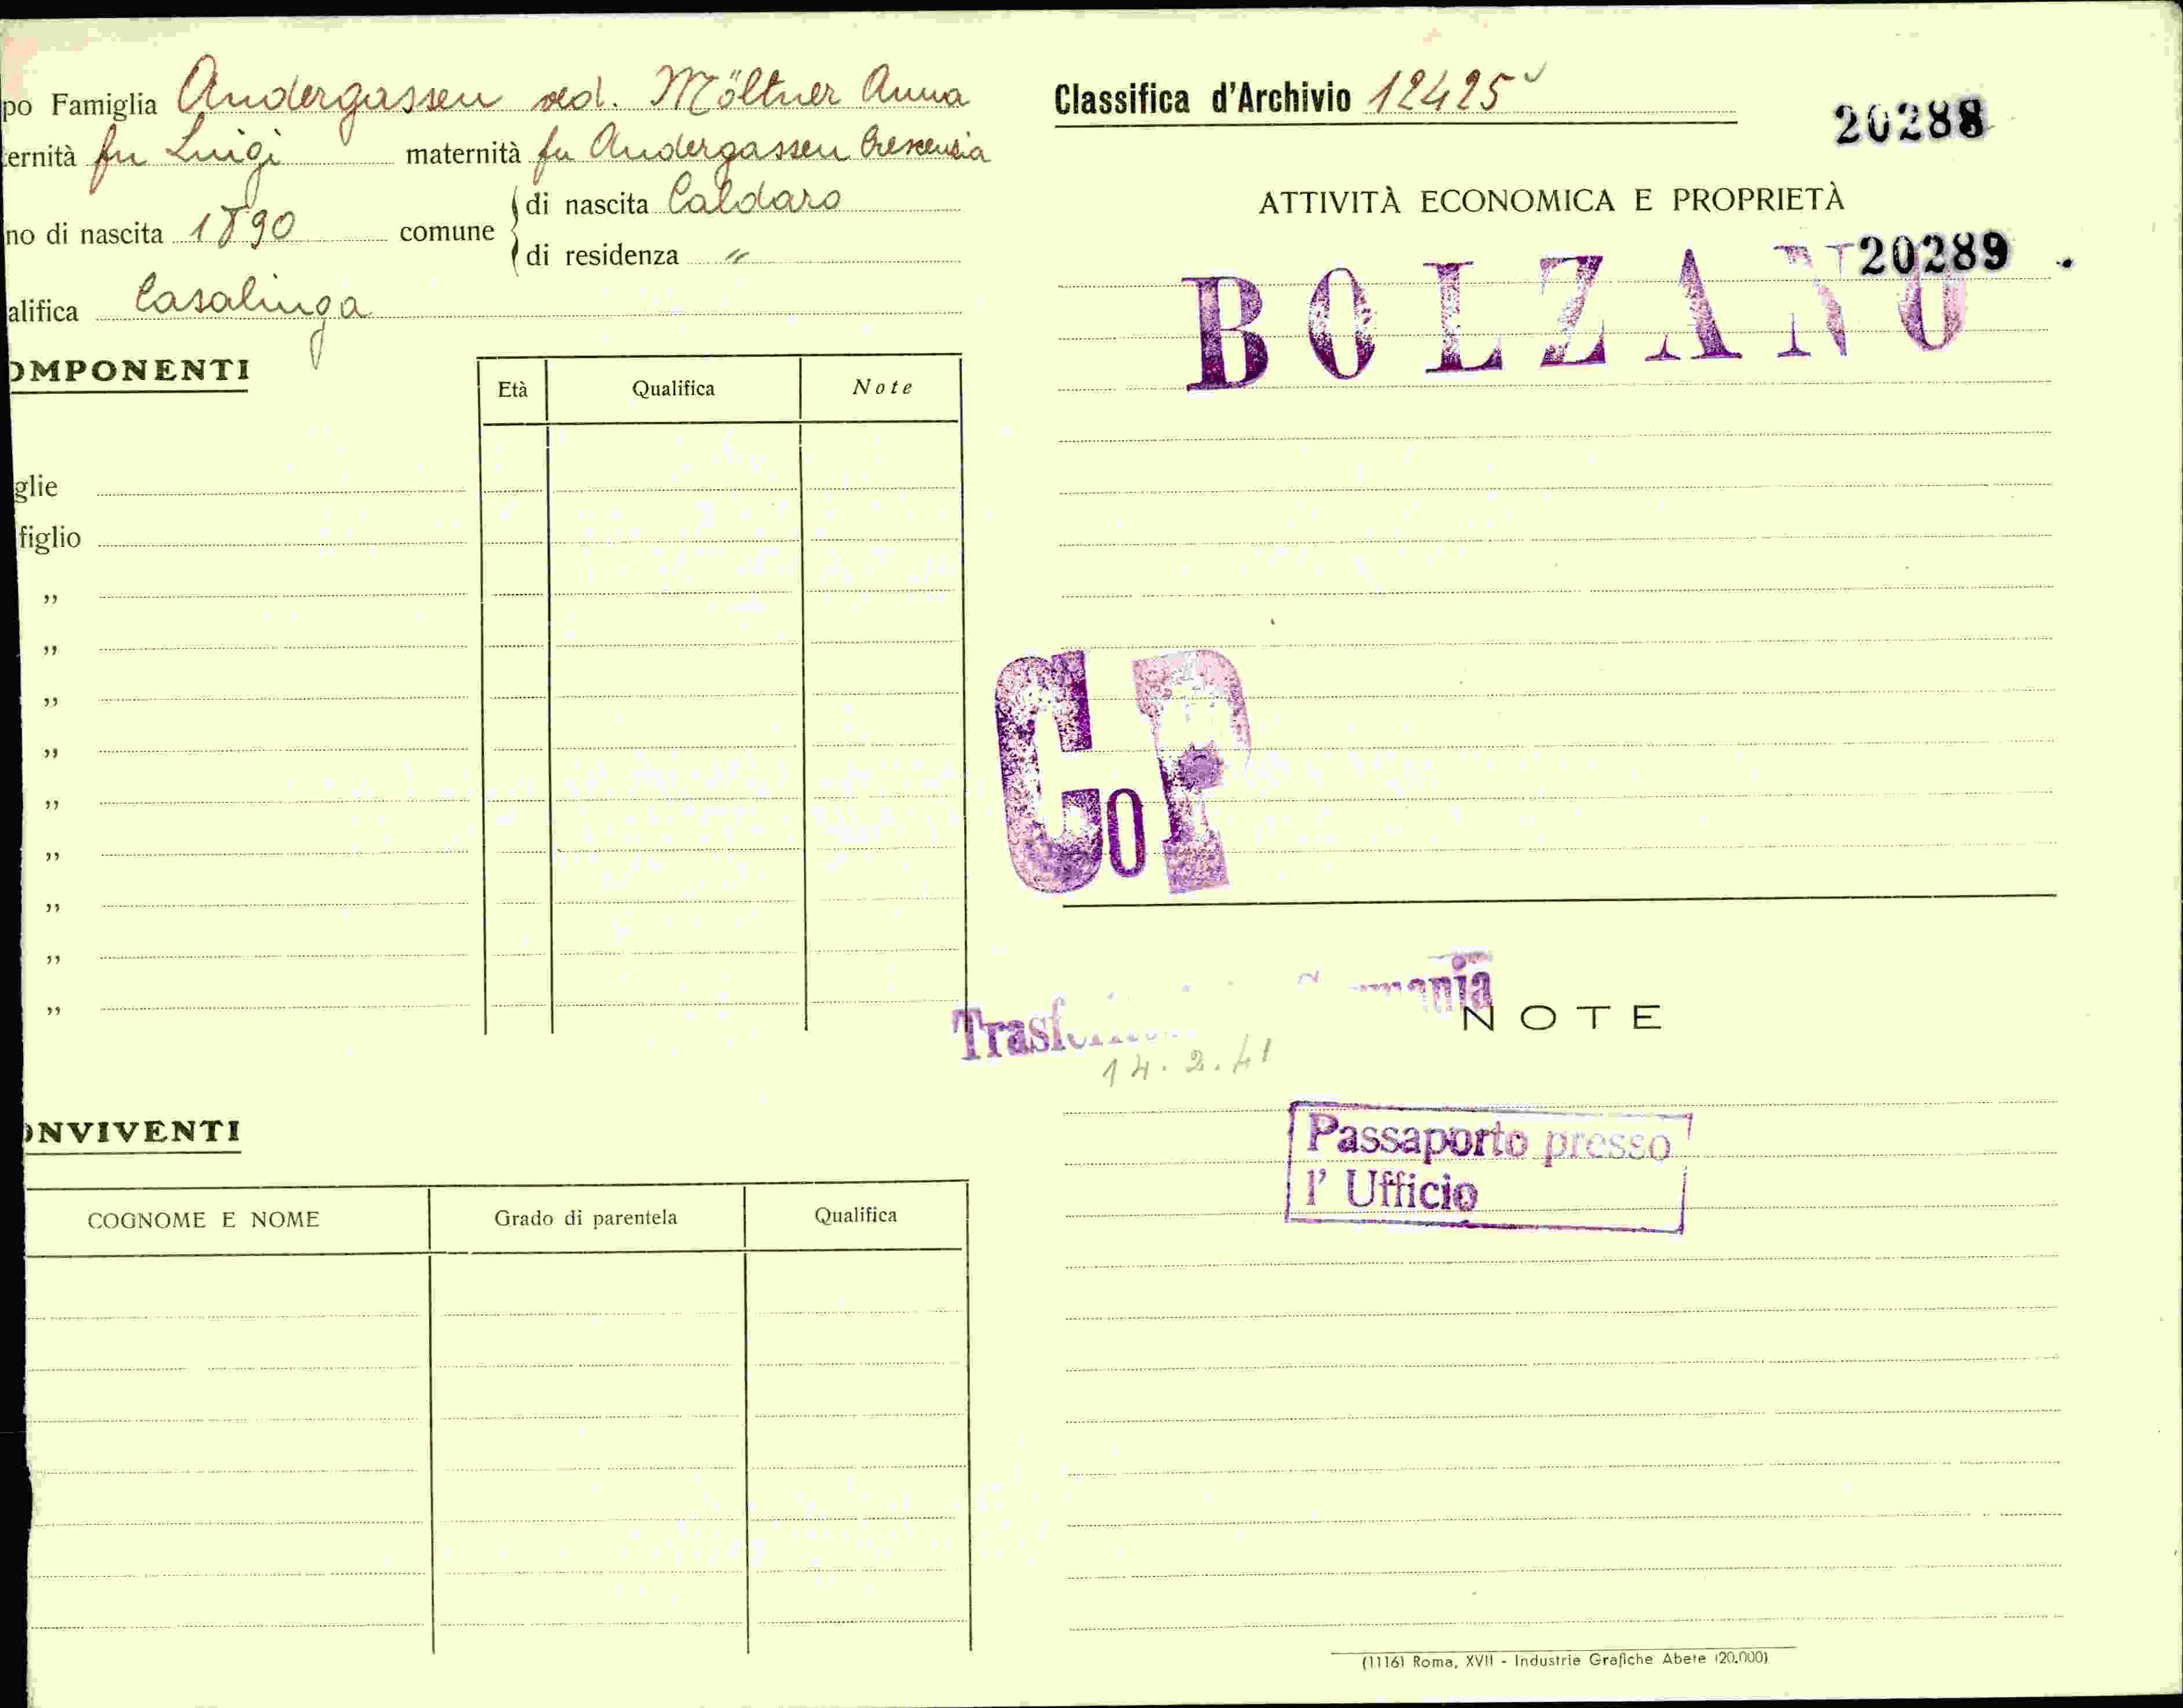 po Famiglia Andergassen ved. Möltner Anna
ernità fu Luigi maternità fu Andergassen Crescenzia
no di nascita 1890 comune di nascita Caldaro
di residenza "
alifica Casalinga
OMPONENTI
Età Qualifica Note
glie
figlio
"
"
"
"
"
"
"
"
"
ONVIVENTI
COGNOME E NOME Grado di parentela Qualifica
Classifica d'Archivio 12425
20288
ATTIVITÀ ECONOMICA E PROPRIETÀ
20289
BOLZANO
CoP
14.2.41
NOTE
Passaporto presso
l' Ufficio
(1116) Roma, XVII - Industrie Grafiche Abete (20.000)